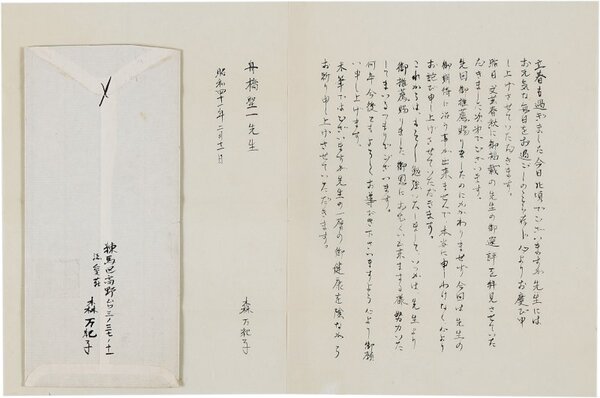 立春も過ぎました今日此頃でございますが先生には
お元気な毎日をお過ごしのことと存じ心よりお慶び申
し上げさせていただきます。
昨日文芸春秋に御掲載の先生の御選評を拝見させていた
だきました次第でございます。
先回御推薦賜りましたのにもかかわりませず、今回は先生の
御期待に沿う事が出来ませんで本当に申しわけなく心より
お詫び申し上げさせていただきます。
これからはもっともっと勉強いたしましていつかは先生より
御推薦賜りました御恩におむくい出来ます様努力いた
してまいるつもりでございます。
何卒今後ともよろしくお導きおき下さいますよう心より御願
い申し上げます。
末筆ではございますが先生の一層の御健康を陰ながら
お祈り申し上げさせていただきます。
森万紀子
昭和四十一年二月十一日
舟橋聖一先生
〆
練馬区高野台三ノ三七ノ十一
森万紀子